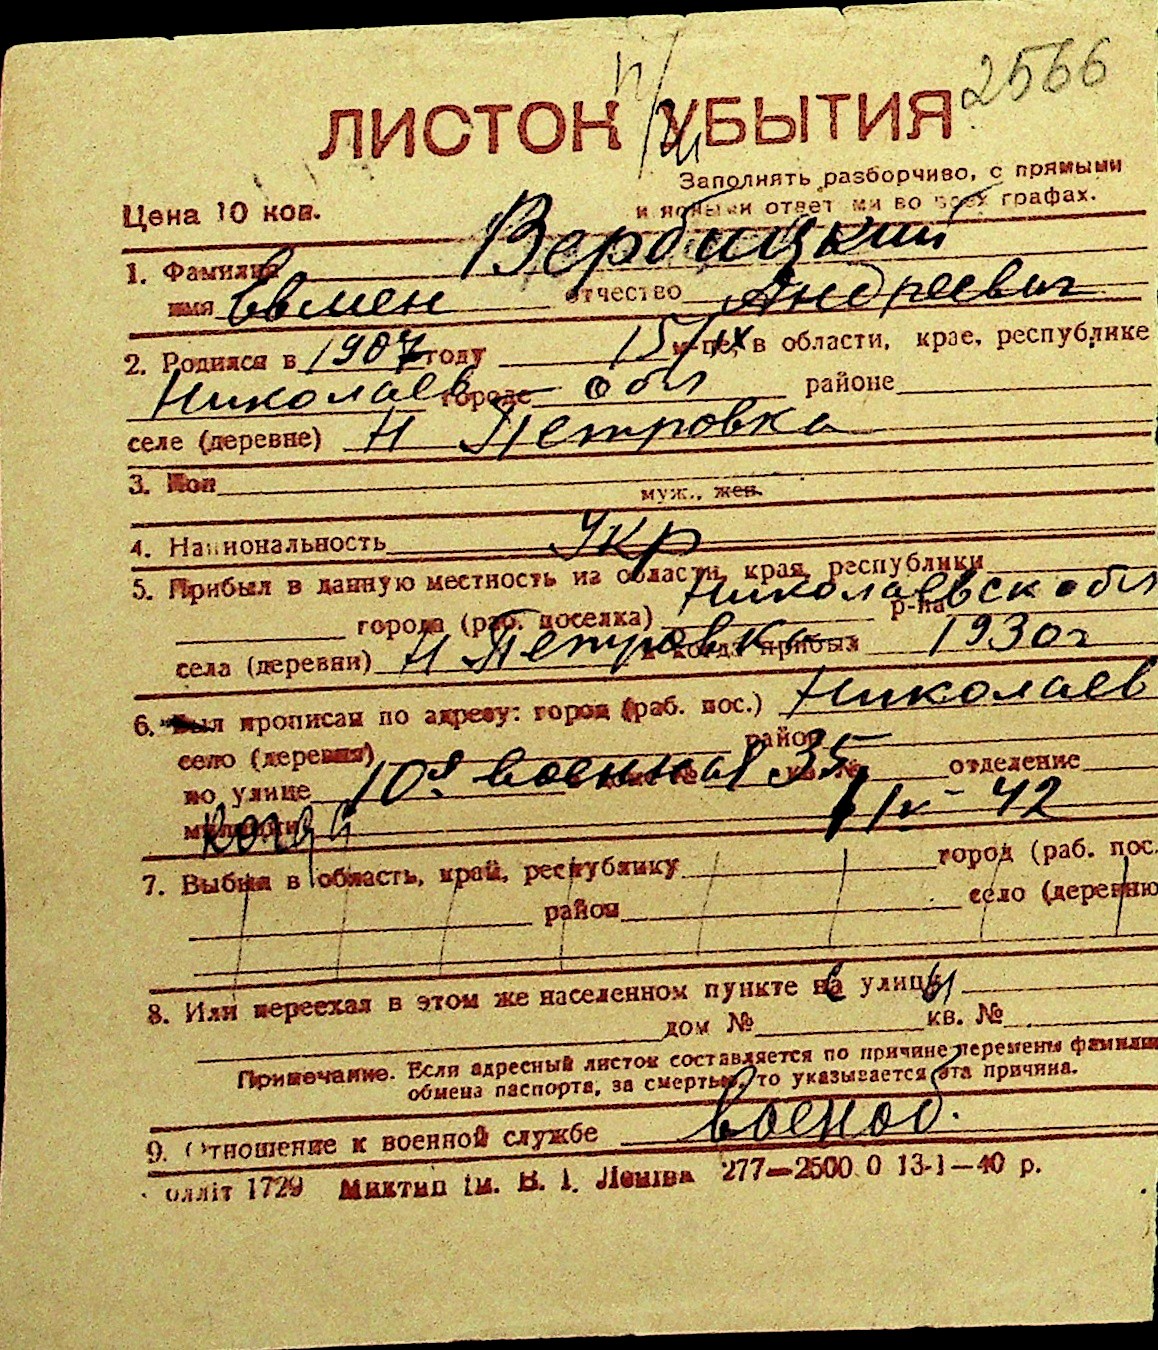 2566
ЛИСТОК УБЫТИЯ
Заполнять разборчиво, с прямыми
и ясными ответами во всех графах.
Цена 10 коп.
1. Фамилия Вербицкий
имя Евмен отчество Андреевич
2. Родился в 1907 году 15/IX м-це, в области, крае, республике
Николаев городе обл районе
селе (деревне) Н Петровка
3. Пол муж., жен.
4. Национальность Укр
5. Прибыл в данную местность из области, края, республики
города (раб. поселка) Николаевск обл р-на
села (деревни) Н Петровка и когда прибыл 1930г
6. Был прописан по адресу: город (раб. пос.) Николаев
село (деревня) район
по улице 10я военная дом № 35 кв. № отделение
милиции 1/IV-42
7. Выбыл в область, край, республику город (раб. пос.
район село (деревню
8. Или переехал в этом же населенном пункте на улицу
дом № кв. №
Примечание. Если адресный листок составляется по причине перемены фамилии
обмена паспорта, за смертью, то указывается эта причина.
9. Отношение к военной службе военоб.
олліт 1729 Миктип ім. В. І. Леніна 277—2500 0 13-1—40 р.